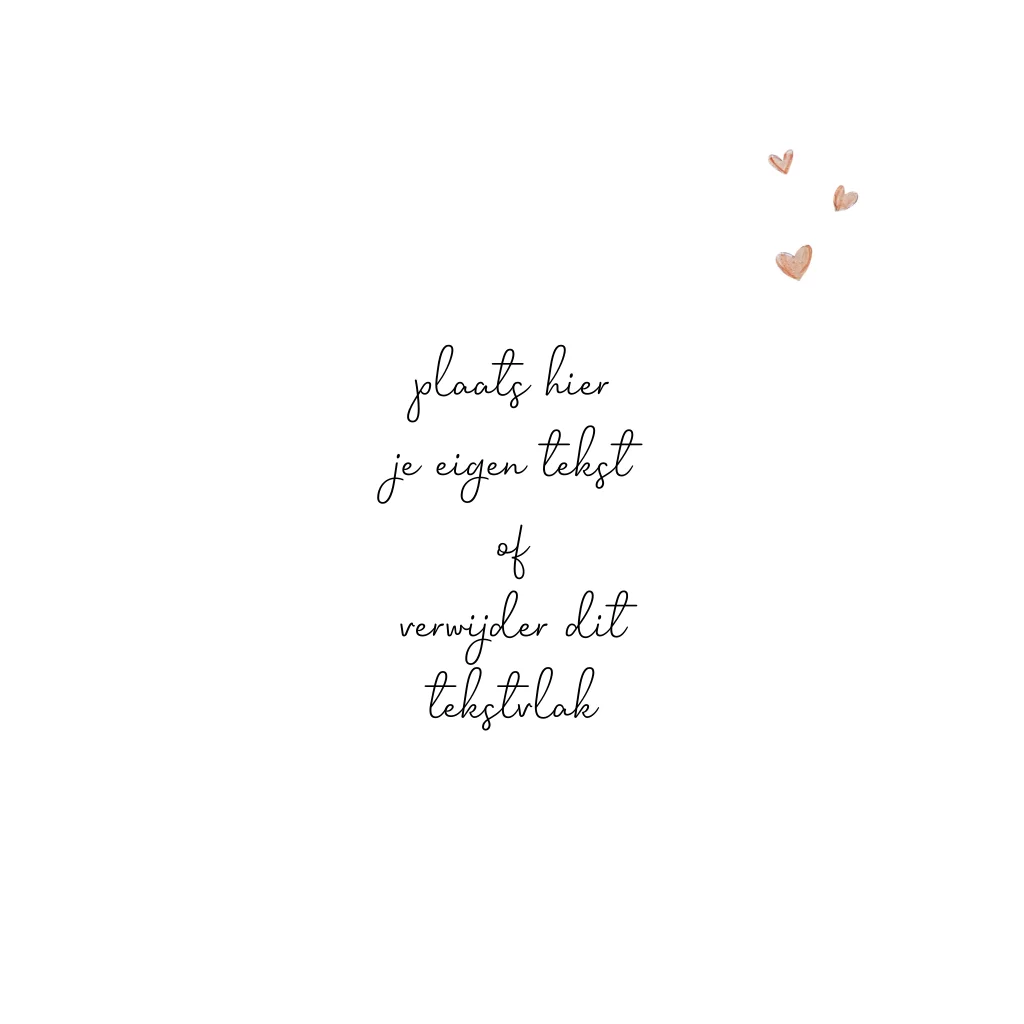 plaats hier
je eigen tekst
of
verwijder dit
tekstvlak